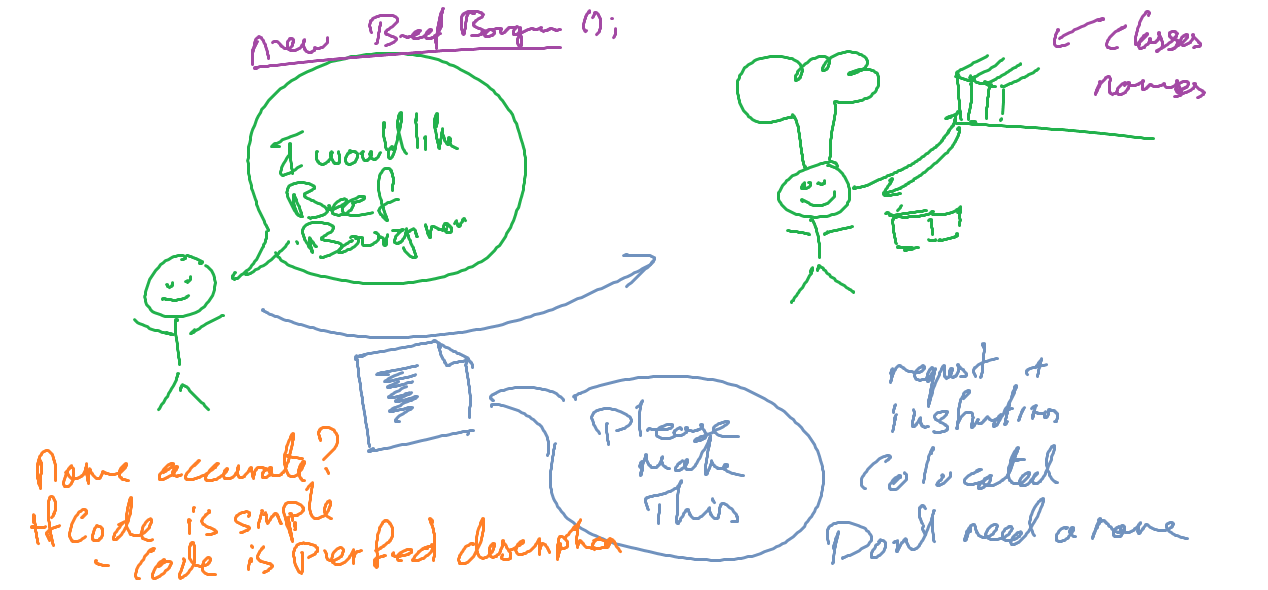 new Beef Bourgnon ();
I would like
Beef
Bourginon
← classes
names
Please
Make
This
request +
instructions
Colocated
Don't need a name
Name accurate?
If Code is simple
- Code is perfect description